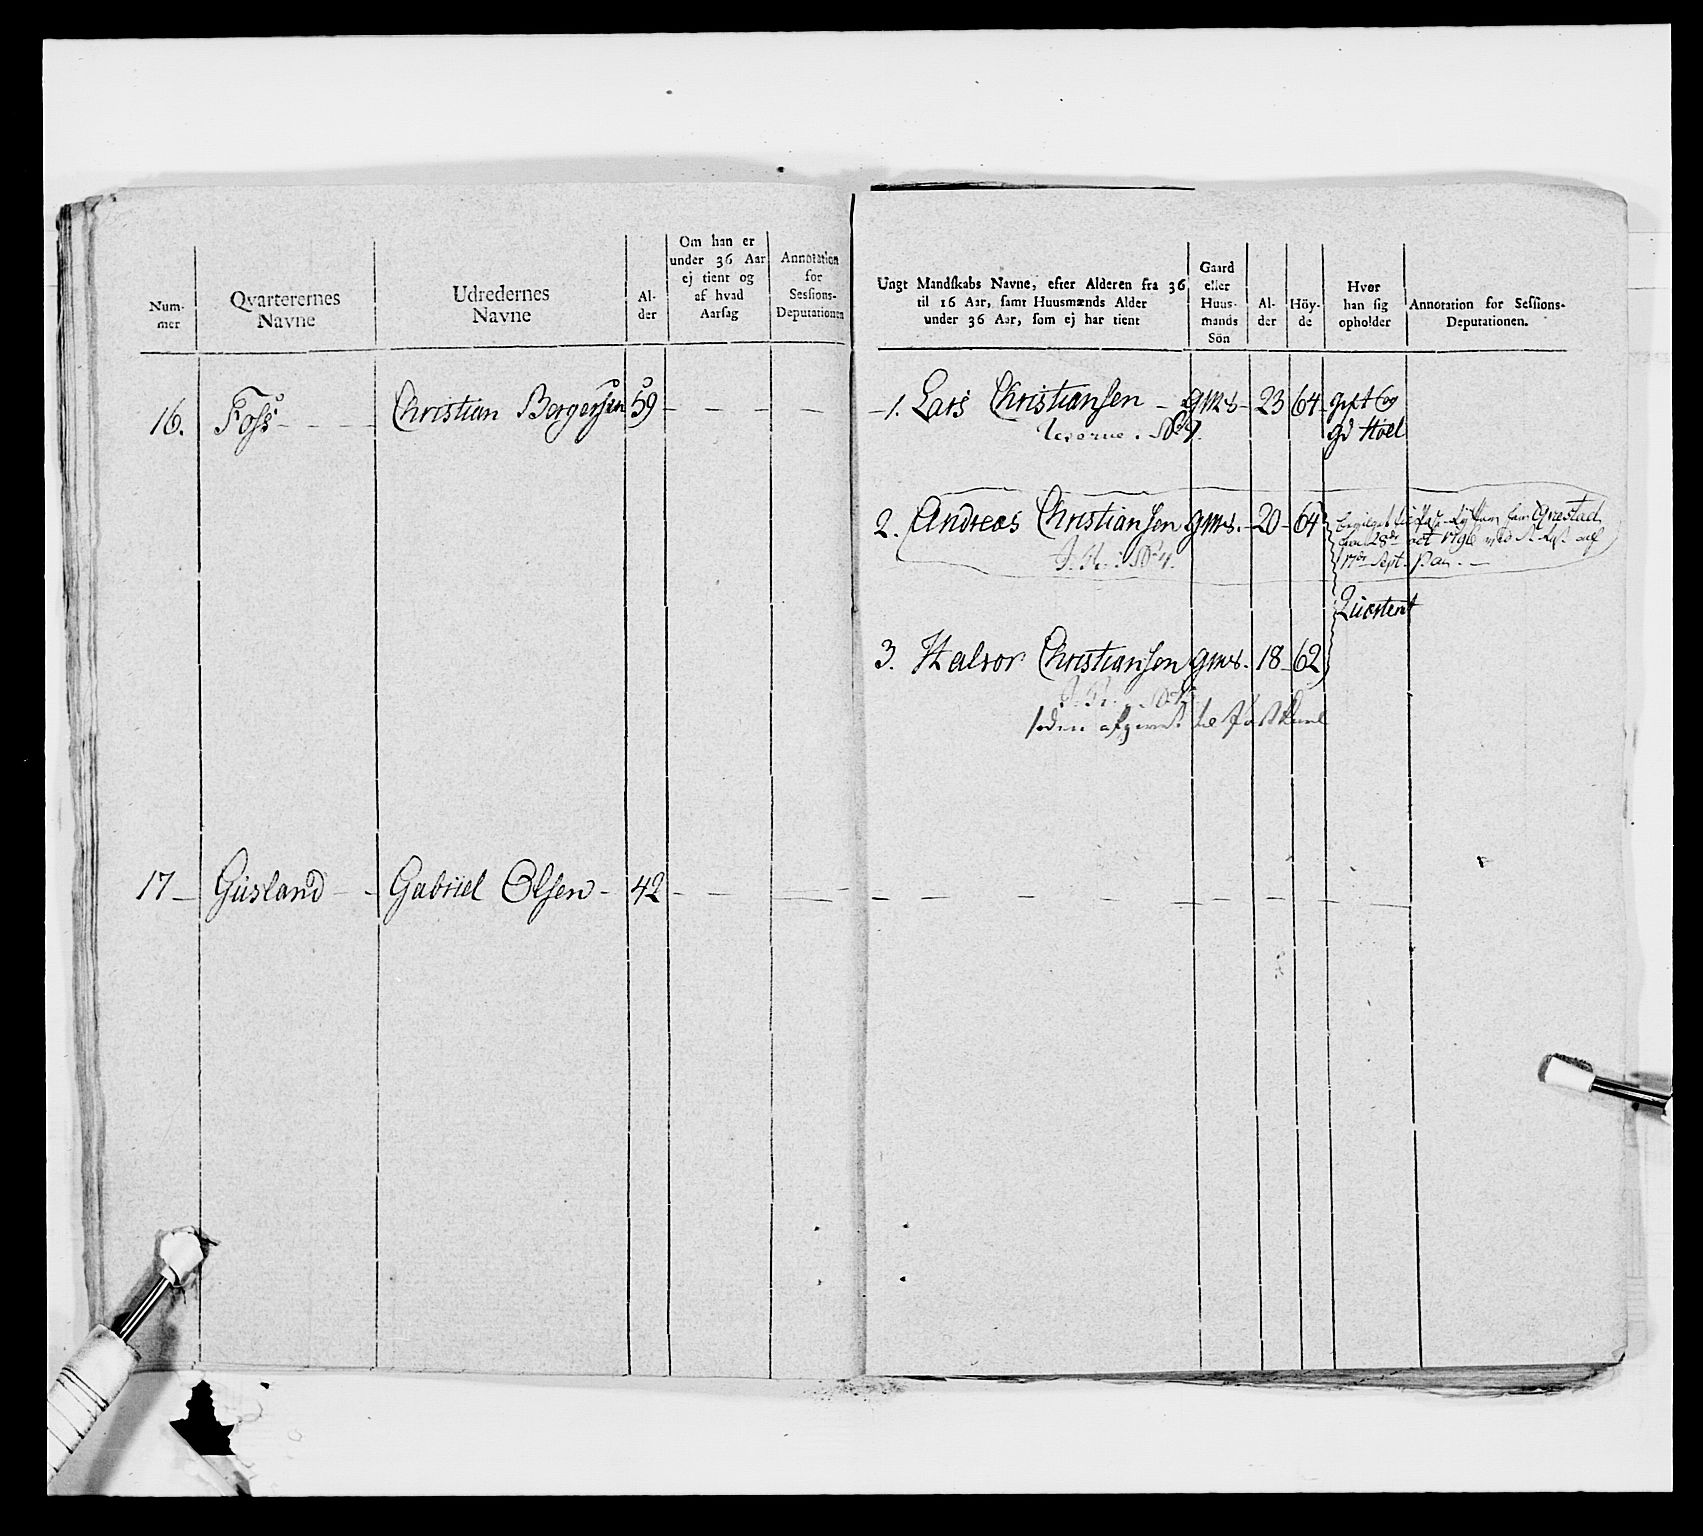 Num-
mer
Qvarterernes
Navne
Udredernes
Navne
Al-
der
Om han er
under 36 Aar
ej tient og
af hvad
Aarsag
Annotation
for
Sessions-
Deputationen
Ungt Mandskabs Navne, efter Alderen fra 36
til 16 Aar, samt Huusmænds Alder
under 36 Aar, som ej har tient
Gaard
eller
Huus-
mands
Sön
Al-
der
Höy-
de
Hvor
han sig
opholder
Annotation for Sessions-
Deputationen.
16. Foss Christian Bergersen 59
1. Lars Christiansen gms 23 64 gift og
gd Hoel
2. Andreas Christiansen gms. 20 64
28de oct 1796
17de Sept.
Qvarteret
3. Halvor Christiansen gms. 18 62
17 Gusland Gabriel Olsen 42